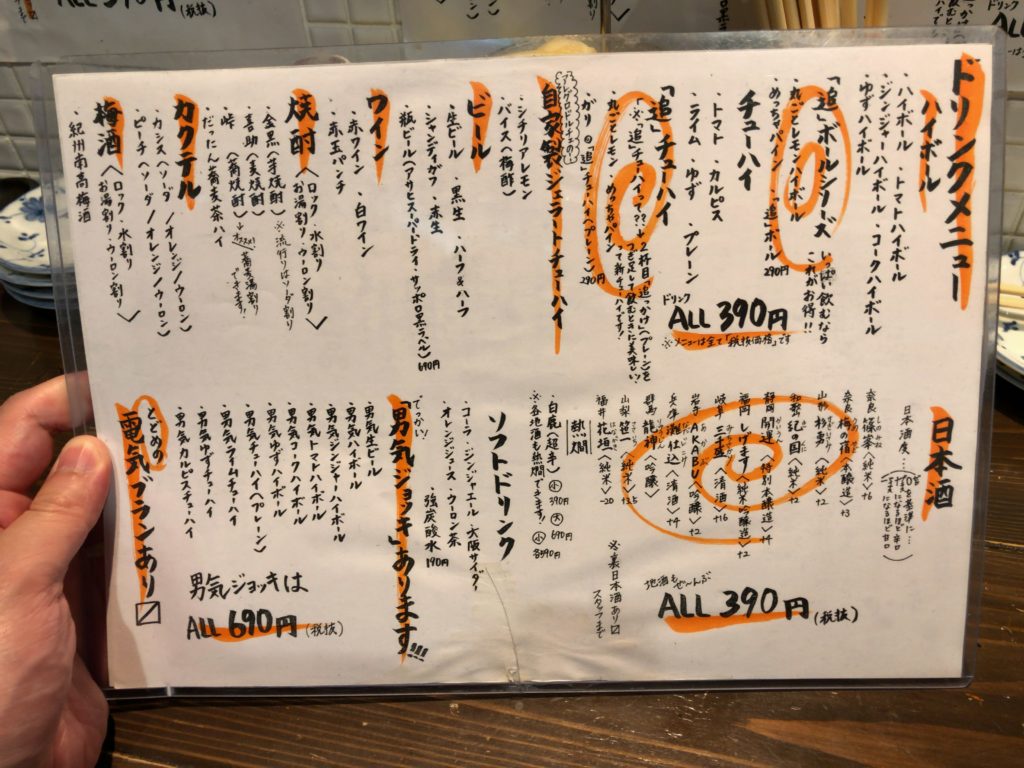 ドリンクメニュー
ハイボール
・ハイボール ・トマトハイボール
・ジンジャーハイボール ・コークハイボール
・ゆずハイボール
「追」ボルシリーズ いっぱい飲むなら これがお得!!
・丸ごとレモンハイボール 「追」ボル 290円
・めっちゃパイン
チューハイ
・トマト ・カルピス
・ライム ・ゆず ・プレーン
ドリンク
ALL 390円
※メニューは全て「税抜価格」です
「追」チューハイ
※「追」チューハイって??? 2杯目「追」っかけ〈プレーン〉を
つぎ足して飲むときに美味しい
丸ごとレモン ・めっちゃパイン
ガリ 「追」チューハイ〈プレーン〉 290円
自家製ジェラートチューハイ
・シチリアレモン
・バイス〈梅酢〉
ビール
・生ビール ・黒生 ・ハーフ&ハーフ
・シャンディガフ ・赤生
・瓶ビール〈アサヒスーパードライ・サッポロ黒ラベル〉 690円
ワイン
・赤ワイン ・白ワイン
・赤玉パンチ
焼酎〈ロック・水割り お湯割り・ウーロン割り〉
・金黒〈芋焼酎〉 ※流行りはソーダ割り
・喜助〈麦焼酎〉
・峠〈蕎焼酎〉→オススメ! 蕎麦湯割り できます!
・だったん蕎麦茶ハイ
カクテル
・カシス〈ソーダ/オレンジ/ウーロン〉
・ピーチ〈ソーダ/オレンジ/ウーロン〉
梅酒〈ロック・水割り お湯割り・ウーロン割り〉
・紀州南高梅酒
日本酒
日本酒度…
「0」を基準に…
+になるほど辛口
-になるほど甘口
奈良 篠峯〈純米〉+6
奈良 梅の宿〈本醸造〉+3
山形 杉勇〈純米〉+2
和歌山 紀の国〈純米〉+2
静岡 開運〈特別本醸造〉+4
福岡 しげます〈純米吟醸造〉+2
岐阜 三千盛〈清酒〉+16
岩手 AKABU〈吟醸〉+2
兵庫 灘仕込〈清酒〉+4
群馬 龍神〈吟醸〉
山梨 笹一〈純米〉+3.5
福井 花垣〈純米〉-20
地酒もぜ〜んぶ
ALL 390円(税抜)
※裏日本酒あり
スタッフまで
熱燗
・白鹿〈超辛〉 小 390円 大 690円
※各地酒も熱燗できます! 小 各590円
ソフトドリンク
・コーラ・ジンジャエール・大阪サイダー
・オレンジジュース・ウーロン茶
・強炭酸水 190円
でっかい!
「男気ジョッキ」あります!!!
・男気生ビール
・男気ハイボール
・男気ジンジャーハイボール
・男気トマトハイボール
・男気ゆずハイボール
・男気チューハイ〈プレーン〉
・男気ライムチューハイ
・男気ゆずチューハイ
・男気カルピスチューハイ
男気ジョッキは
ALL 690円(税抜)
とどめの
電気ブランあり